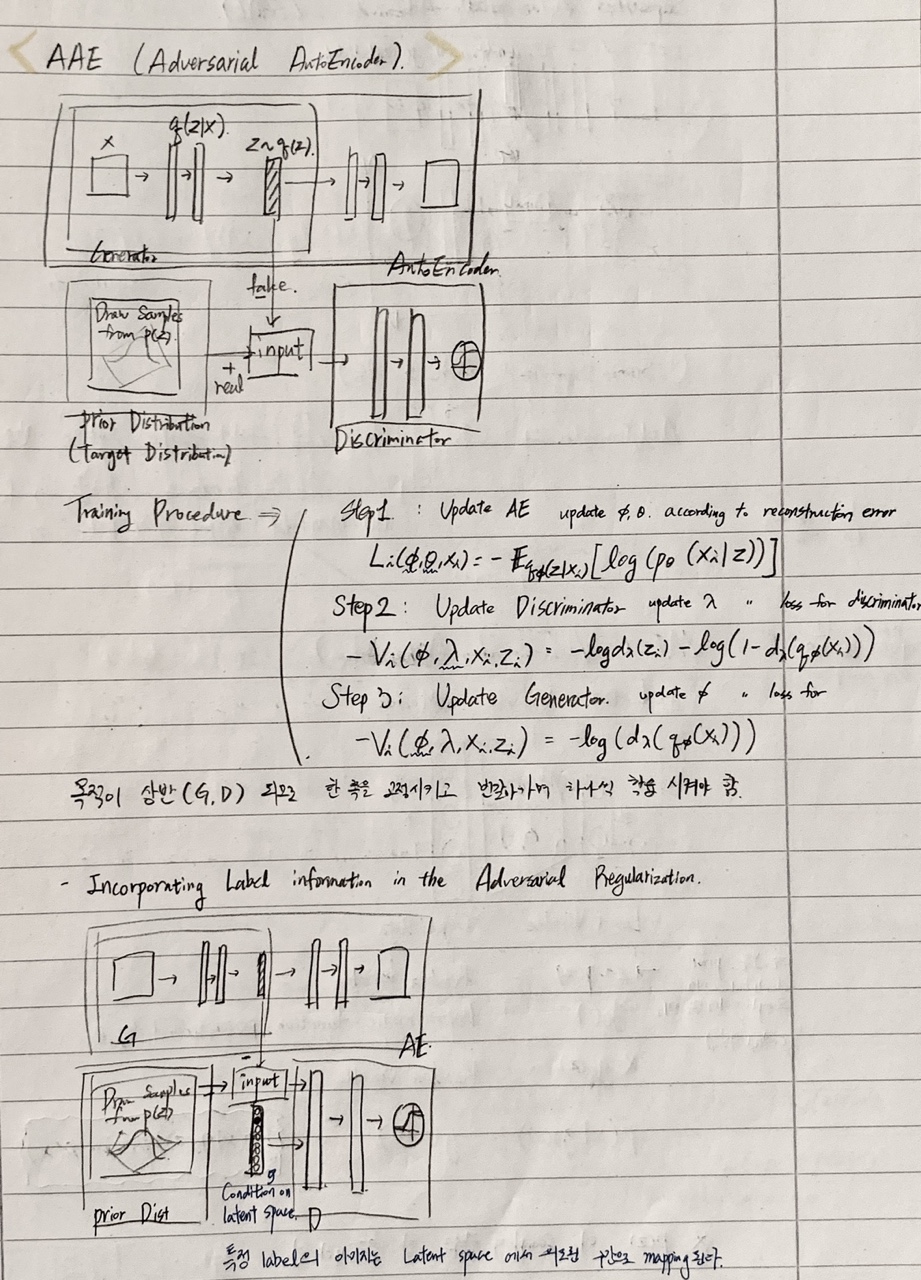 < AAE (Adversarial AutoEncoder). >
X
q(z|x).
z~q(z).
Generator
AutoEncoder.
fake.
Draw Samples
from p(z).
input
+
real
prior Distribution
(Target Distribution)
Discriminator
Training Procedure ⇒
Step1 : Update AE update ϕ, θ. according to reconstruction error
Li(ϕ,θ,xi) = - E qϕ(z|xi) [log(pθ(xi|z))]
Step2 : Update Discriminator update λ " loss for discriminator
-Vi(ϕ,λ,xi,zi) = -logdλ(zi) - log(1-dλ(qϕ(xi)))
Step 3 : Update Generator. update ϕ " loss for
-Vi(ϕ,λ,xi,zi) = -log(dλ(qϕ(xi)))
목적이 상반(G,D) 되므로 한 쪽을 고정시키고 번갈아가며 하나씩 학습 시켜야 함.
- Incorporating Label information in the Adversarial Regularization.
G
AE.
Draw Samples
from p(z)
input
y
Condition on
latent space.
prior Dist
D
특정 label의 이미지는 Latent space 에서 의도된 구간으로 mapping된다.